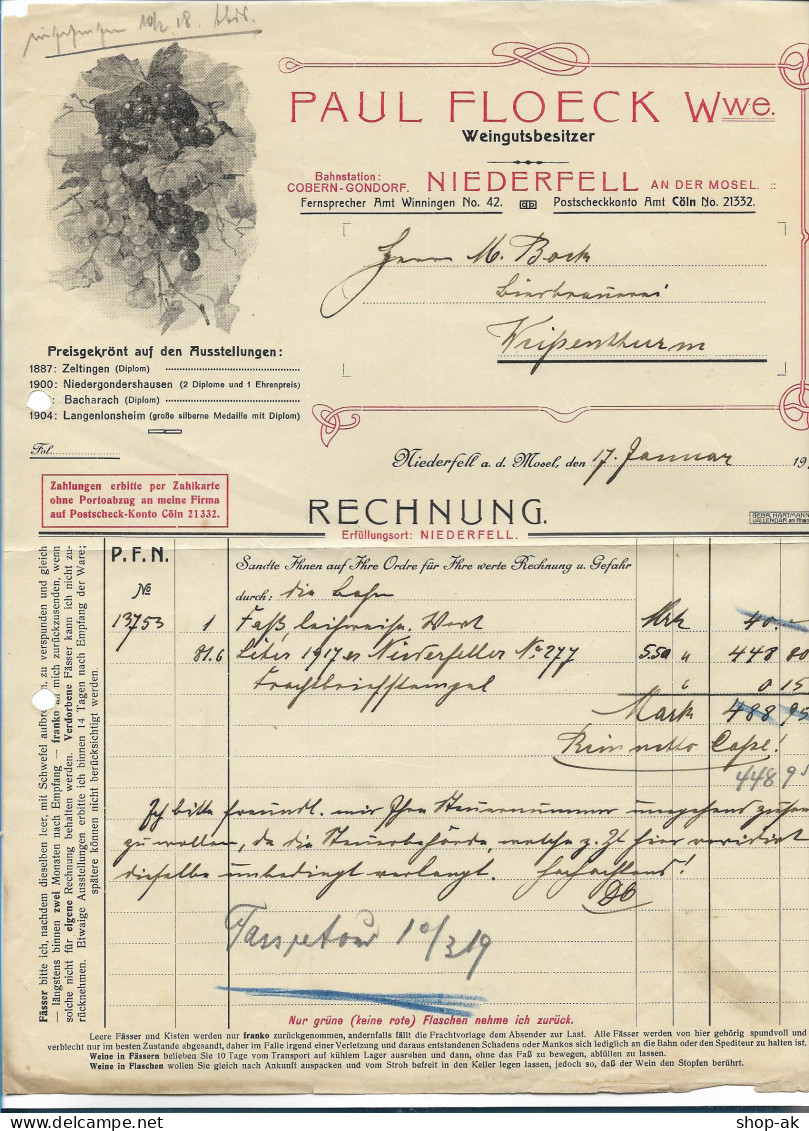 10/2. 18.
PAUL FLOECK Wwe.
Weingutsbesitzer
Bahnstation:
COBERN-GONDORF. NIEDERFELL AN DER MOSEL.
Fernsprecher Amt Winningen No. 42. Postscheckkonto Amt Cöln No. 21332.
Herrn M. Bock
Bierbrauerei
Weißenthurm
Preisgekrönt auf den Ausstellungen:
1887: Zeltingen (Diplom)
1900: Niedergondershausen (2 Diplome und 1 Ehrenpreis)
: Bacharach (Diplom)
1904: Langenlonsheim (große silberne Medaille mit Diplom)
Fol.
Niederfell a. d. Mosel, den 17. Januar 19
Zahlungen erbitte per Zahlkarte
ohne Portoabzug an meine Firma
auf Postscheck-Konto Cöln 21332.
RECHNUNG.
Erfüllungsort: NIEDERFELL.
GEBR. HARTMANN
VALLENDAR an Rhein
P. F. N.
No
Sandte Ihnen auf Ihre Ordre für Ihre werte Rechnung u. Gefahr
durch: die Bahn
13753 1 Faß leihweise, Wert Mrk 40.-
81.6 Liter 1917er Niederfeller No 277 5.50 " 448 80
Frachtbriefstempel " 0 15
Mark 488 95
Rein netto Casse!
448 95
Ich bitte freundl. mir Ihre Steuernummer umgehend
zu wollen, da die Steuerbehörde, welche z. Zt hier revidirt
dieselbe unbedingt verlangt. Hochachtend!
10/3 19
Fässer bitte ich, nachdem dieselben leer, mit Schwefel zu verspunden und gleich
— längstens binnen zwei Monaten nach Empfang — franko mich zurückzusenden, wenn
solche nicht für eigene Rechnung behalten werden. Verdorbene Fässer kann ich nicht zu-
rücknehmen. Etwaige Ausstellungen erbitte ich binnen 14 Tagen nach Empfang der Ware;
spätere können nicht berücksichtigt werden.
Nur grüne (keine rote) Flaschen nehme ich zurück.
Leere Fässer und Kisten werden nur franko zurückgenommen, andernfalls fällt die Frachtvorlage dem Absender zur Last. Alle Fässer werden von hier gehörig spundvoll und
verblecht nur im besten Zustande abgesandt, daher im Falle irgend einer Verletzung und daraus entstandenen Schadens oder Mankos sich lediglich an die Bahn oder den Spediteur zu halten ist.
Weine in Fässern belieben Sie 10 Tage vom Transport auf kühlem Lager ausruhen und dann, ohne das Faß zu bewegen, abfüllen zu lassen.
Weine in Flaschen wollen Sie gleich nach Ankunft auspacken und vom Stroh befreit in den Keller legen lassen, jedoch so, daß der Wein den Stopfen berührt.
© oldthing.com
shop-ak